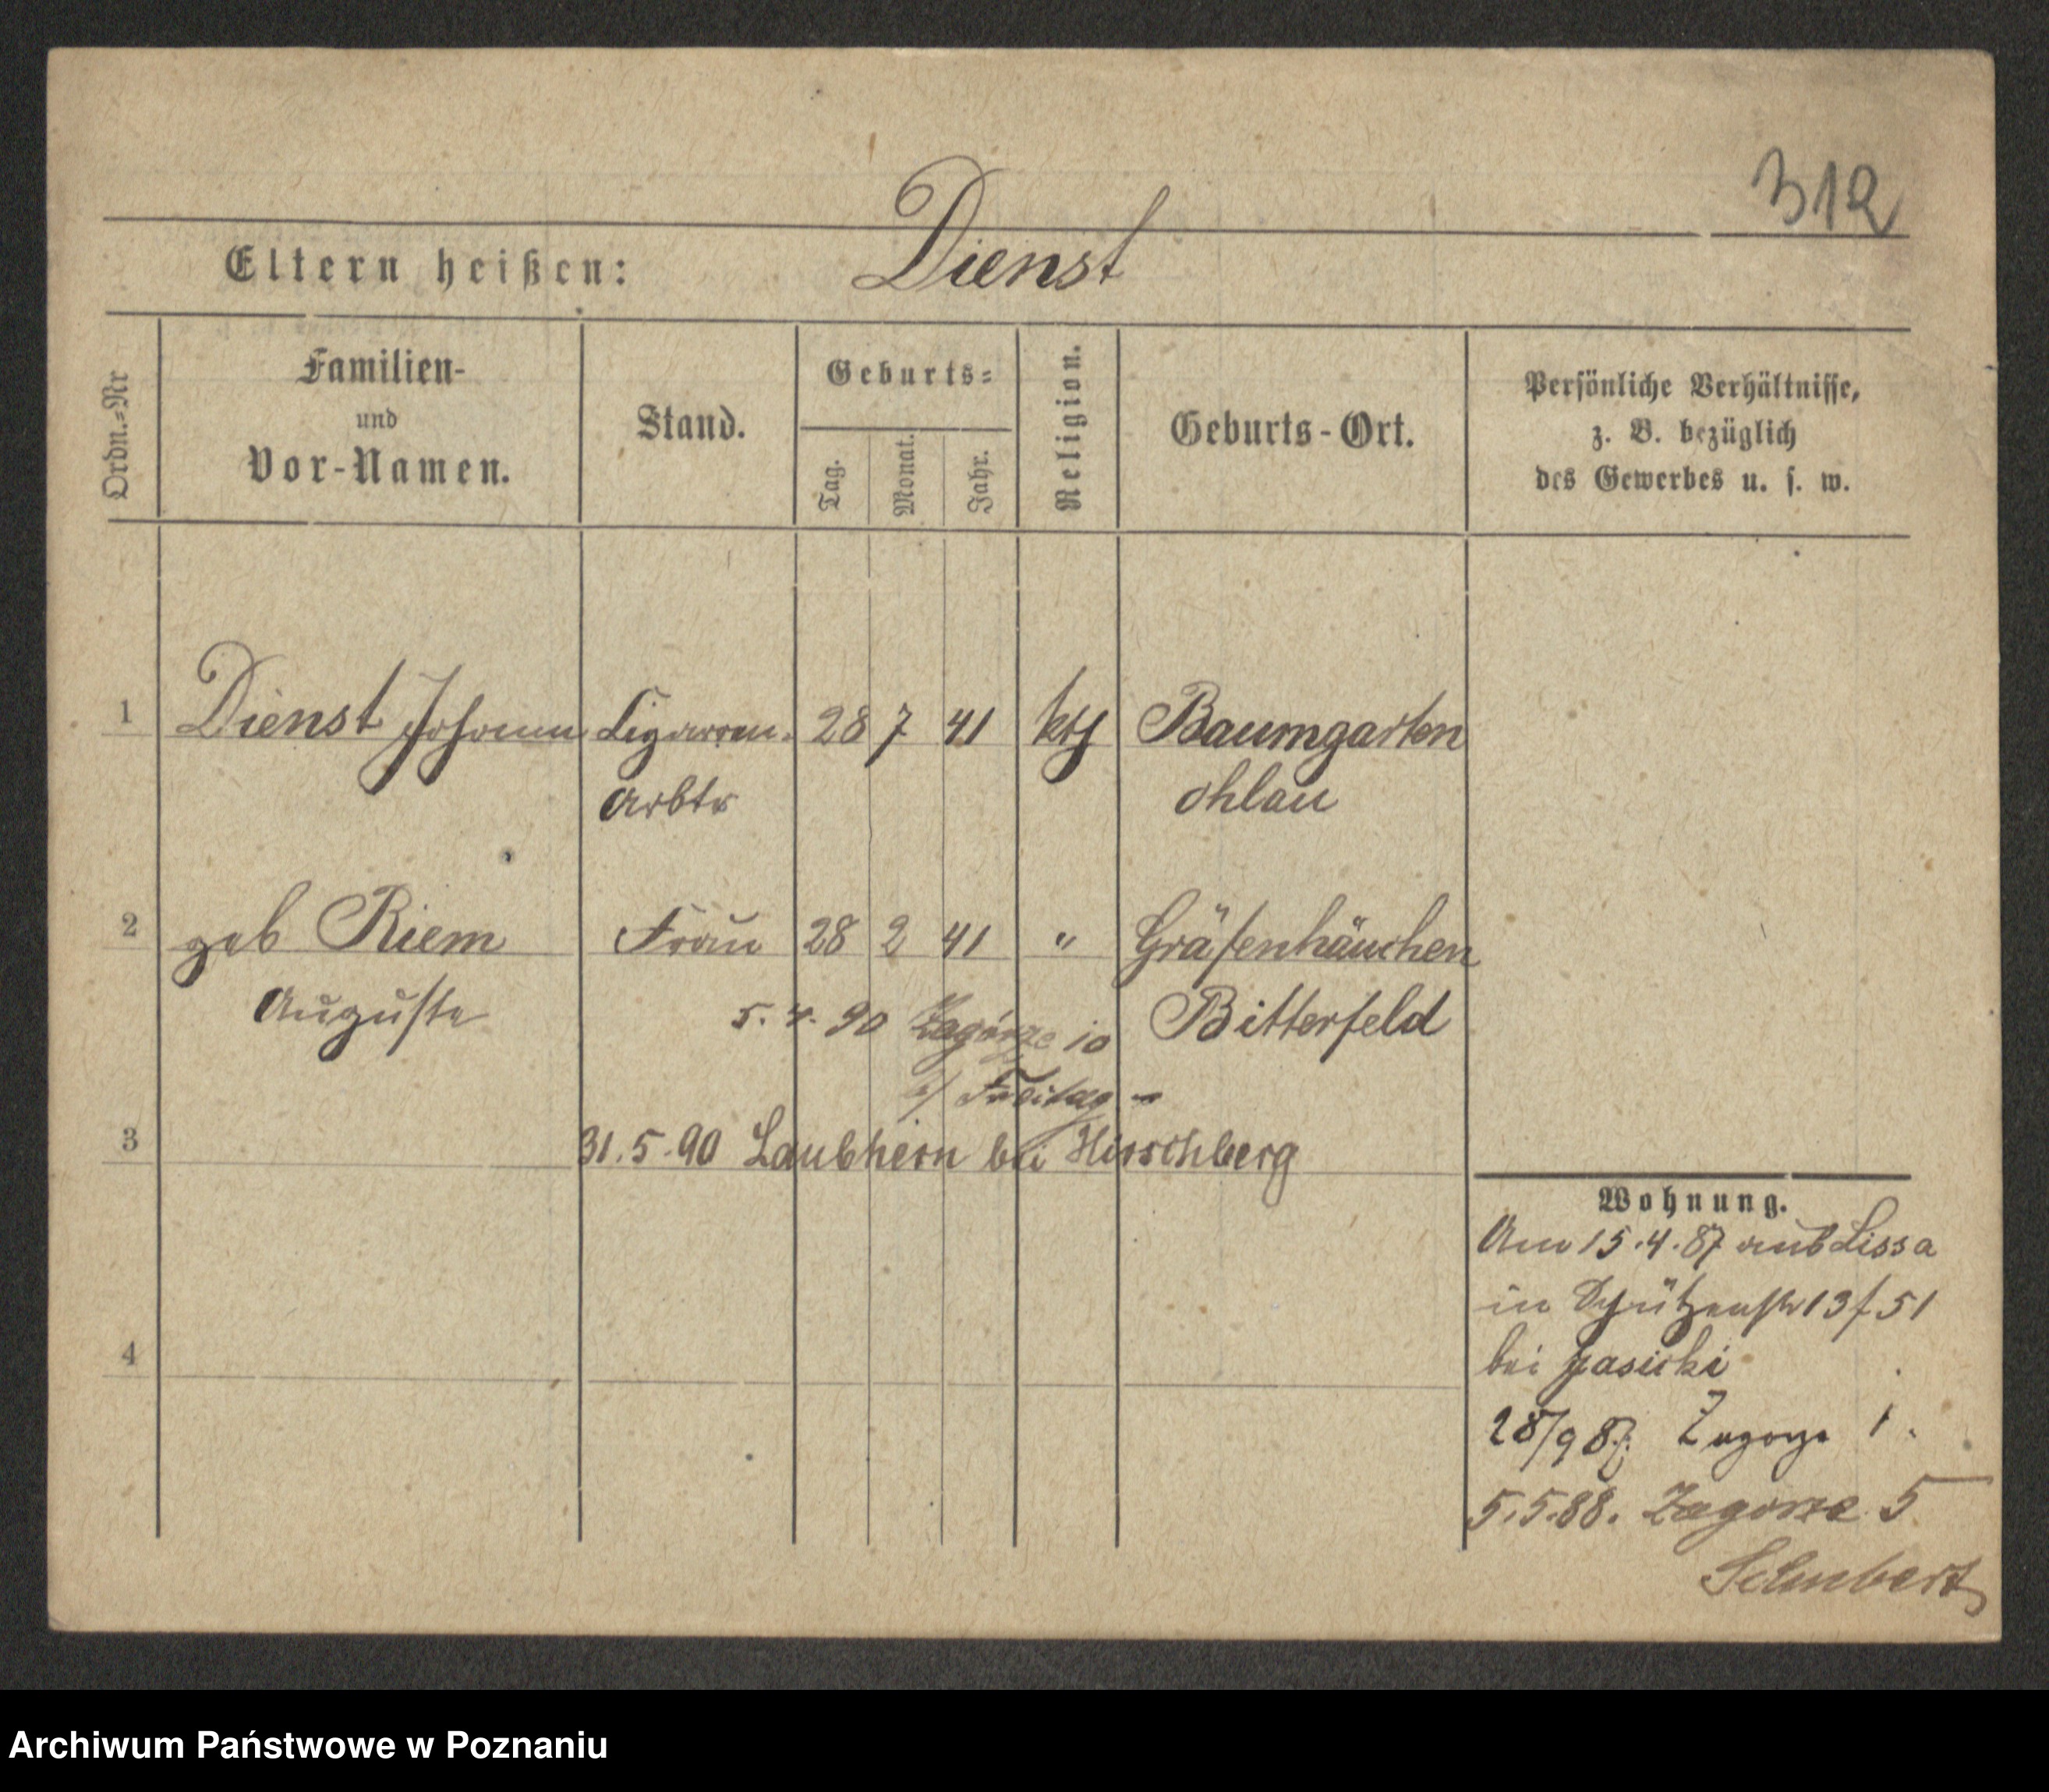 312
Eltern heißen: Dienst
Ordn.=Nr
Familien-
und
Vor-Namen.
Stand.
Geburts=
Tag.
Monat.
Jahr.
Religion.
Geburts-Ort.
Persönliche Verhältnisse,
z. B. bezüglich
des Gewerbes u. s. w.
1 Dienst Johann Cigarren- 28 7 41 kth Baumgarten
Arbtr Ohlau
2 geb Riem Frau 28 2 41 " Gräfenhäuchen
Auguste Bitterfeld
5. 4. 90 Zagórze 10
b/ Freitag -
3 31.5.90 bei Hirschberg
Wohnung.
Am 15.4.87 aus Lissa
in Schützenstr 13 f 51
bei Jasicki
4
28/9 87. Zagorze 1.
5.5.88. Zagorze 5
Schubert
Archiwum Państwowe w Poznaniu